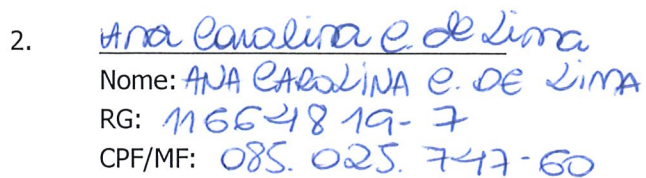 2. Ana Carolina C. de Lima
Nome: ANA CAROLINA C. DE LIMA
RG: 11664819-7
CPF/MF: 085.025.747-60